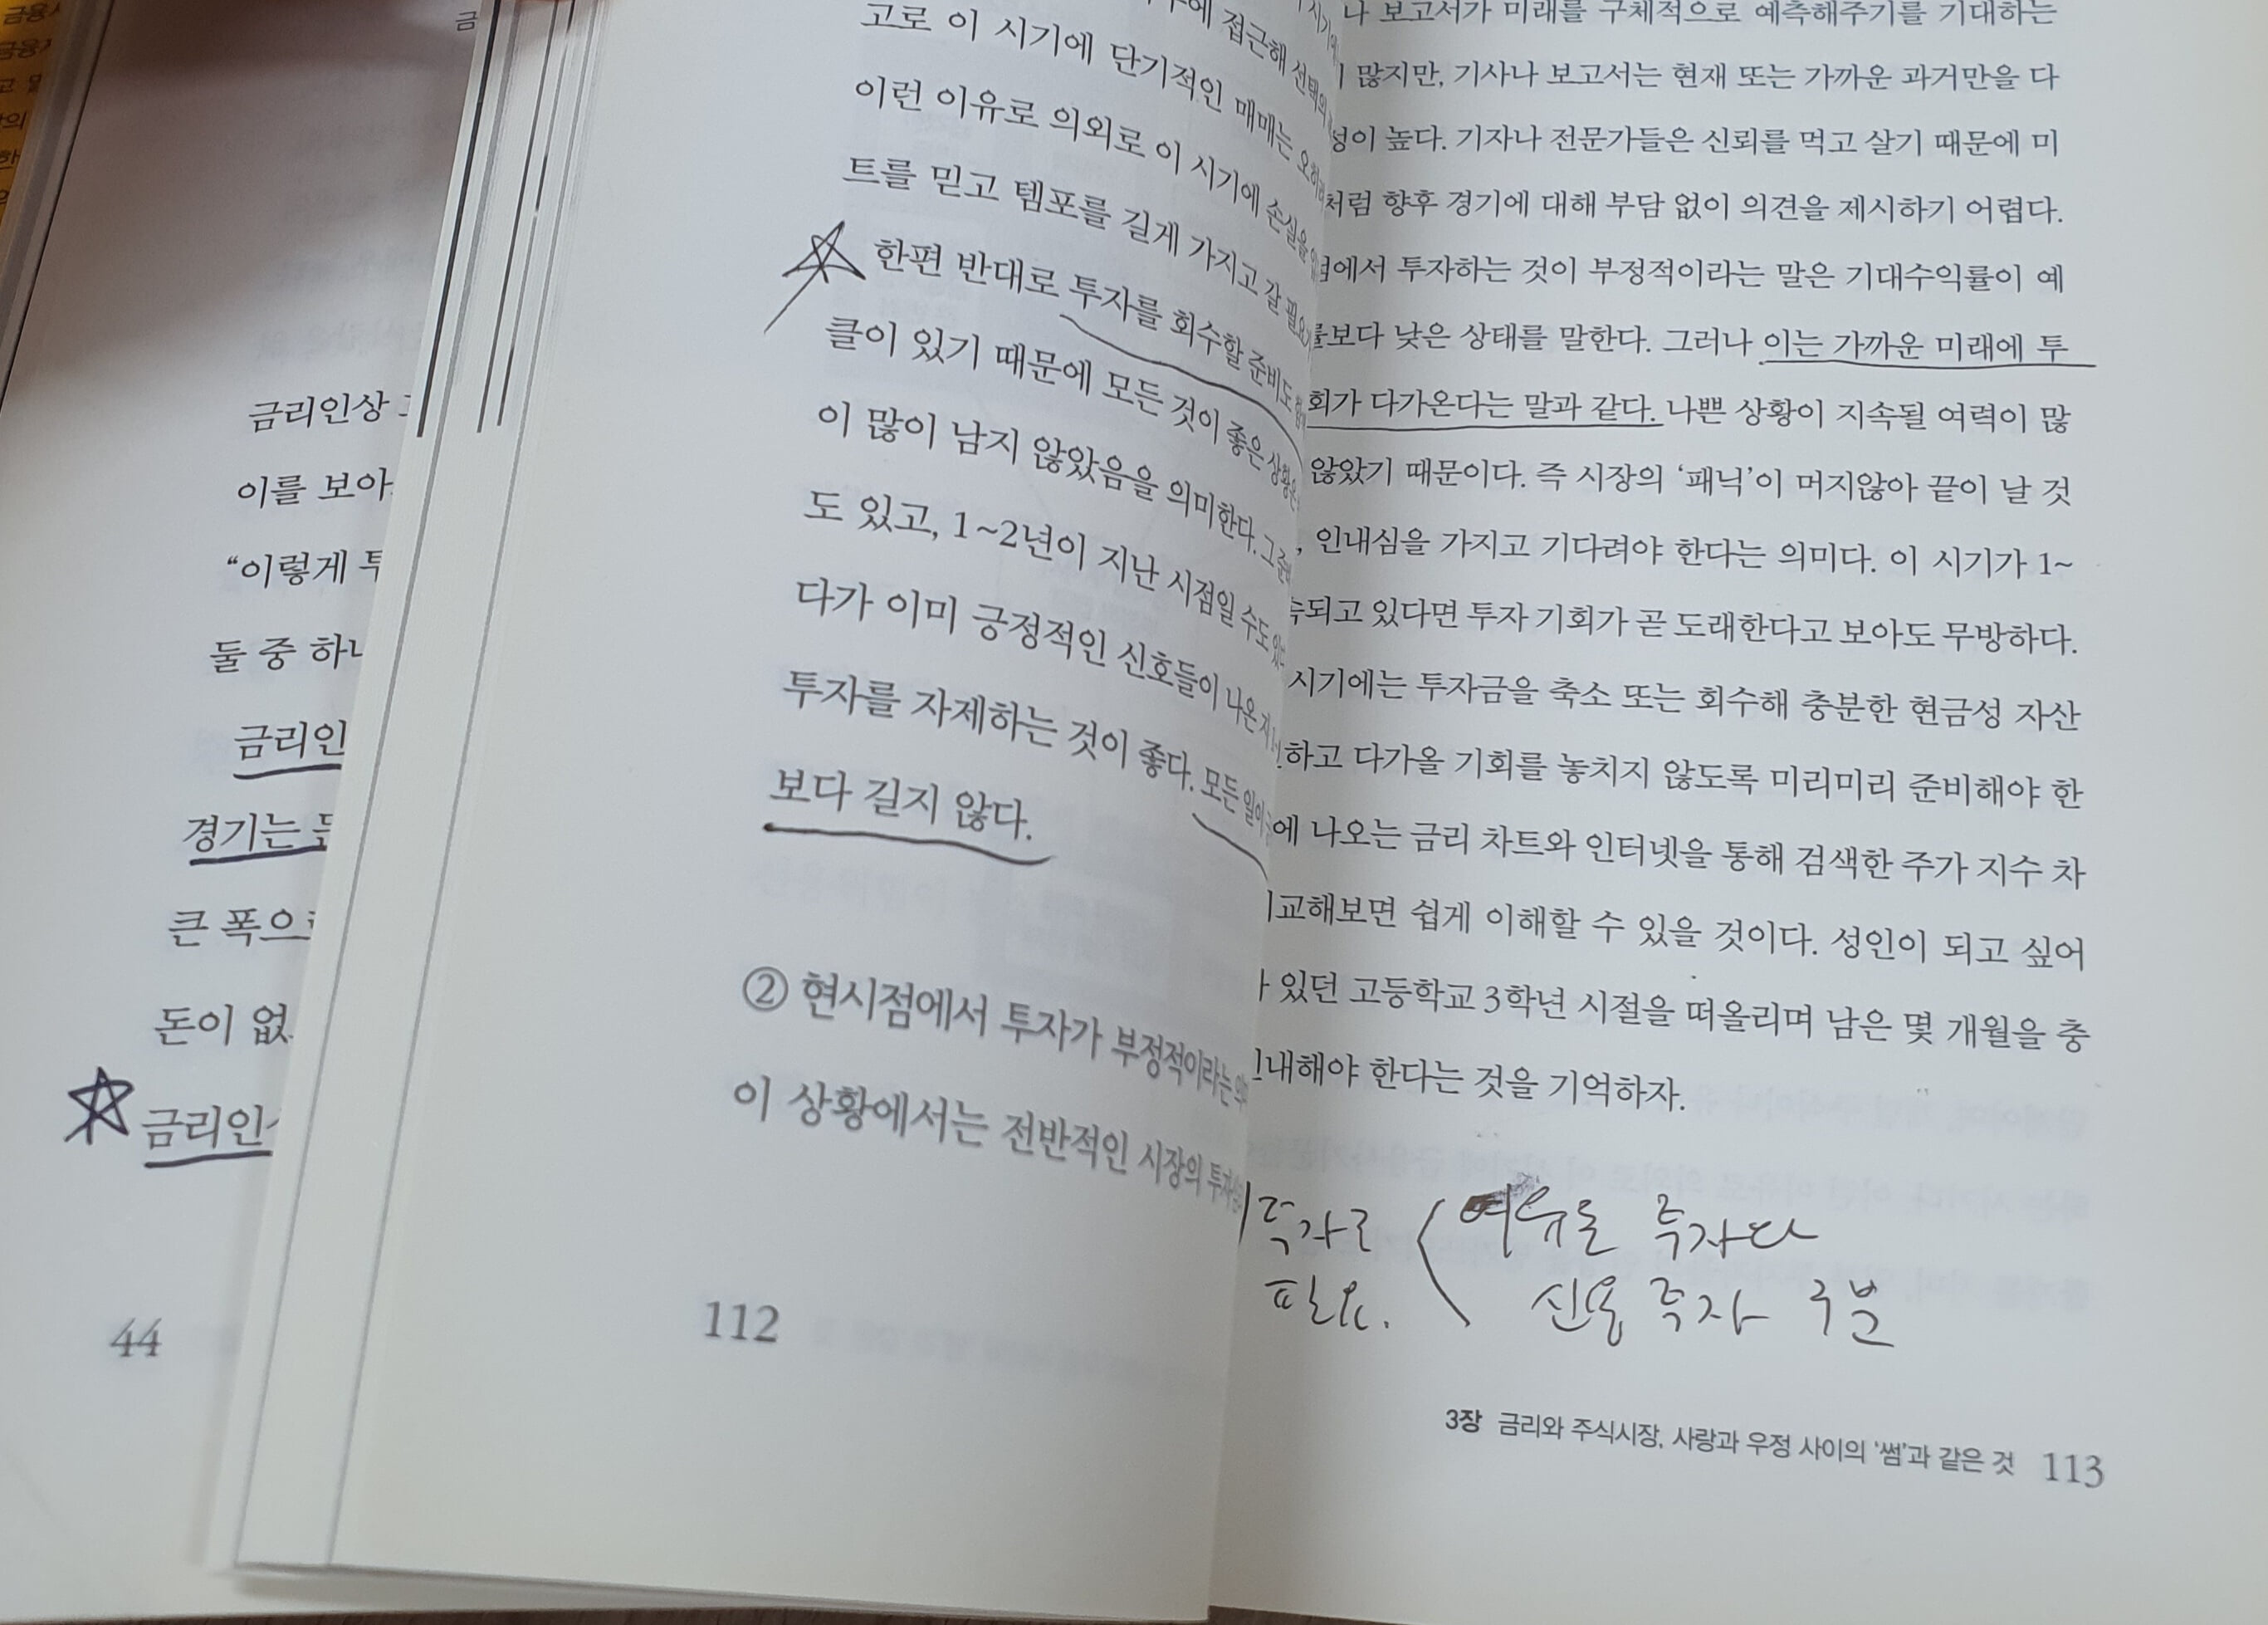 금
금리인상
이를 보아
“이렇게 투
둘 중 하나
금리인
경기는
큰 폭으로
돈이 없
금리인
44
접근해 선택의
고로 이 시기에 단기적인 매매는 오히려
이런 이유로 의외로 이 시기에 손실을
트를 믿고 템포를 길게 가지고 갈 필요
한편 반대로 투자를 회수할 준비도
클이 있기 때문에 모든 것이 좋은 상황은
이 많이 남지 않았음을 의미한다. 그 순간
도 있고, 1~2년이 지난 시점일 수도 있
다가 이미 긍정적인 신호들이 나온 지
투자를 자제하는 것이 좋다. 모든 일이
보다 길지 않다.
② 현시점에서 투자가 부정적이라는
이 상황에서는 전반적인 시장의 투자
112
나 보고서가 미래를 구체적으로 예측해주기를 기대하는
많지만, 기사나 보고서는 현재 또는 가까운 과거만을 다
성이 높다. 기자나 전문가들은 신뢰를 먹고 살기 때문에 미
처럼 향후 경기에 대해 부담 없이 의견을 제시하기 어렵다.
에서 투자하는 것이 부정적이라는 말은 기대수익률이 예
보다 낮은 상태를 말한다. 그러나 이는 가까운 미래에 투
회가 다가온다는 말과 같다. 나쁜 상황이 지속될 여력이 많
않았기 때문이다. 즉 시장의 ‘패닉’이 머지않아 끝이 날 것
, 인내심을 가지고 기다려야 한다는 의미다. 이 시기가 1~
속되고 있다면 투자 기회가 곧 도래한다고 보아도 무방하다.
시기에는 투자금을 축소 또는 회수해 충분한 현금성 자산
하고 다가올 기회를 놓치지 않도록 미리미리 준비해야 한
에 나오는 금리 차트와 인터넷을 통해 검색한 주가 지수 차
교해보면 쉽게 이해할 수 있을 것이다. 성인이 되고 싶어
있던 고등학교 3학년 시절을 떠올리며 남은 몇 개월을 충
내해야 한다는 것을 기억하자.
투자로 여유로 투자다
필요. 신용 투자 구분
3장 금리와 주식시장, 사랑과 우정 사이의 ‘썸’과 같은 것 113